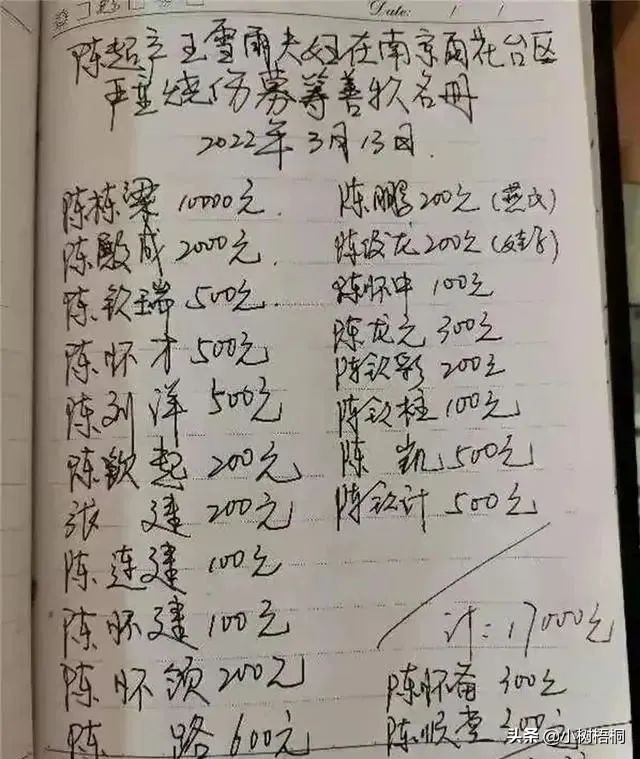 Date: / /
陈超产王雪雨夫妇在南京雨花台区
严重烧伤募筹善款名册
2022年3月13日.
陈栋梁 10000元.
陈殿成 2000元.
陈钦瑞 500元.
陈怀才 500元
陈刘洋 500元
陈钦起 200元
张建 200元
陈连建 100元
陈怀建 100元
陈怀领 200元
陈路 600元
陈鹏 200元
陈龙 200元
陈怀中 100元
陈龙元 300元
陈钦彩 200元
陈钦柱 100元
陈凯 500元
陈钦计 500元
计:17000元
陈怀备 300元
陈顺 300元
头条 @小树梧桐